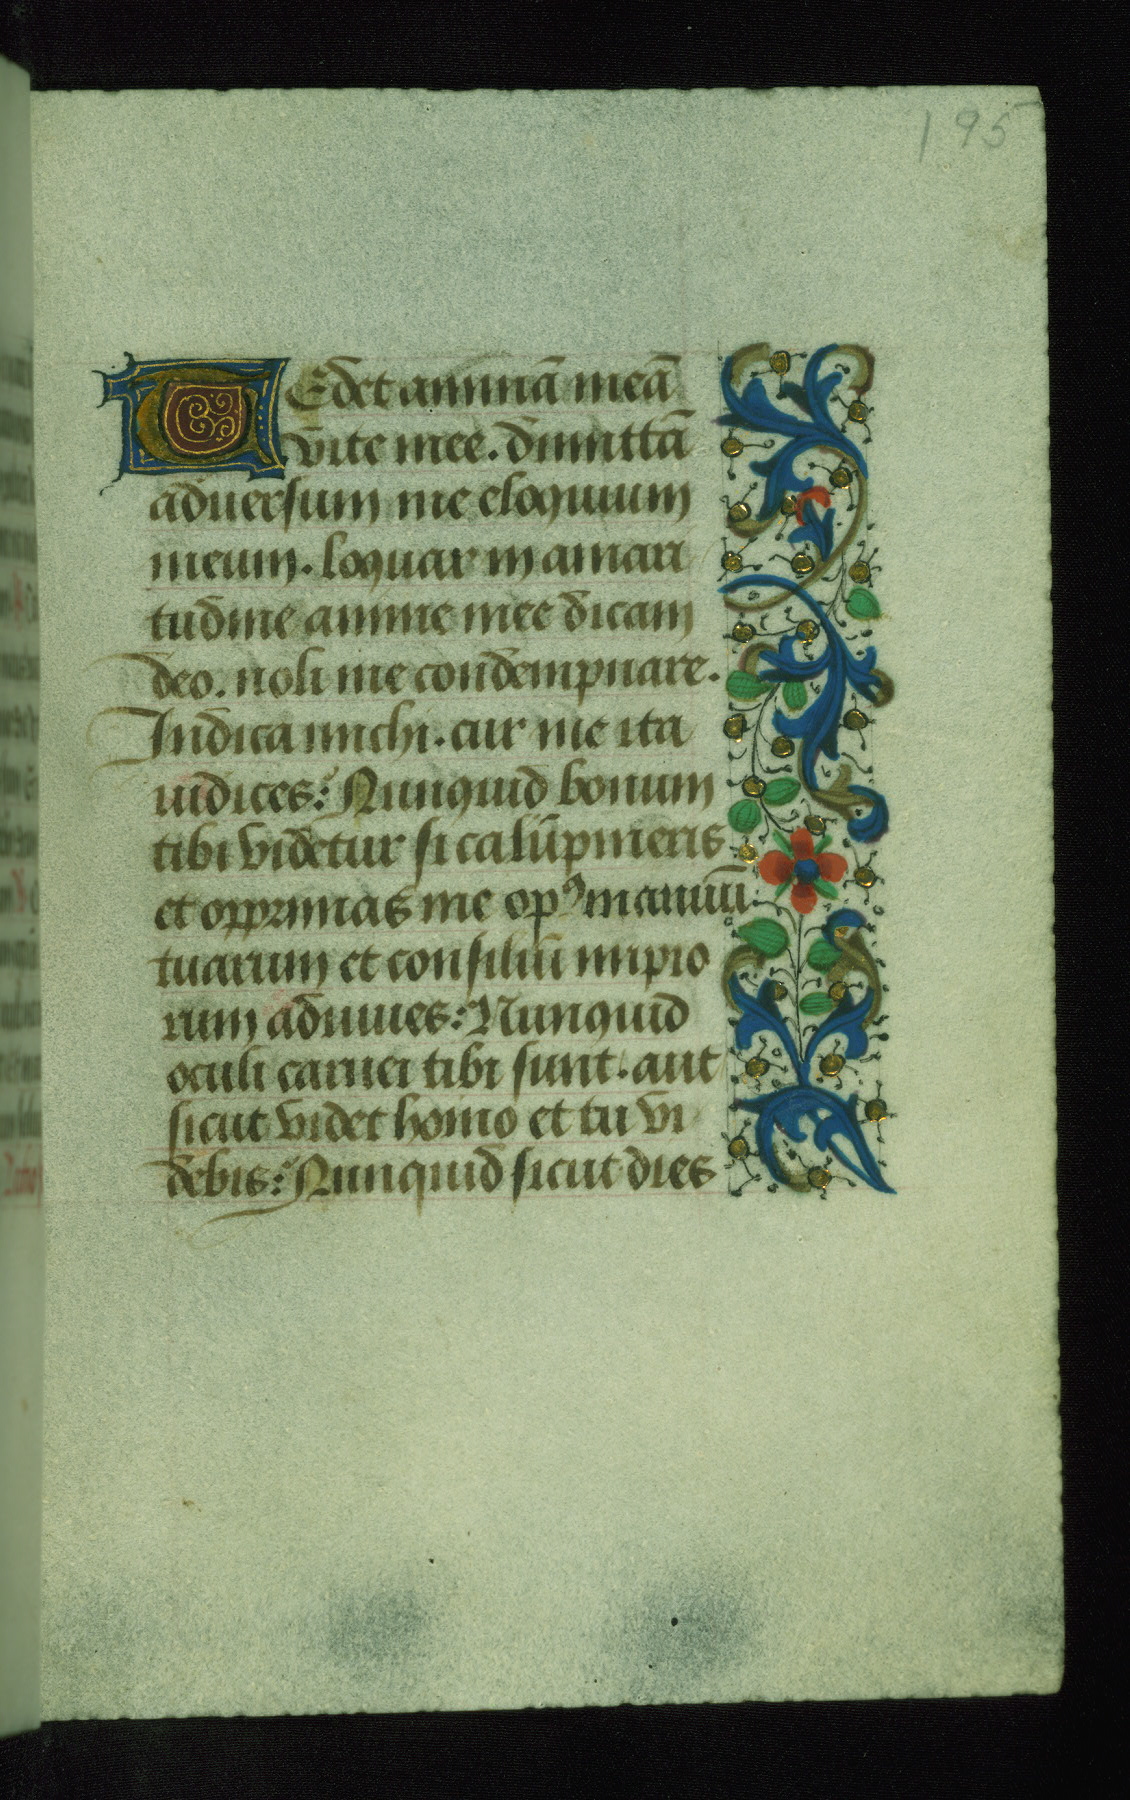 195
TEdet animā meā
vite mee. dimittā
aduersum me eloquium
meum. loquar in amari
tudine anime mee dicam
deo. noli me condempnare.
Indica michi. cur me ita
iudices: Nunquid bonum
tibi videtur si calūpnieris
et opprimas me opꝰ manuū
tuarum et consiliū impio
rum adiuues: Nunquid
oculi carnei tibi sunt. aut
sicut videt homo et tu vi
debis: Nunquid sicut dies